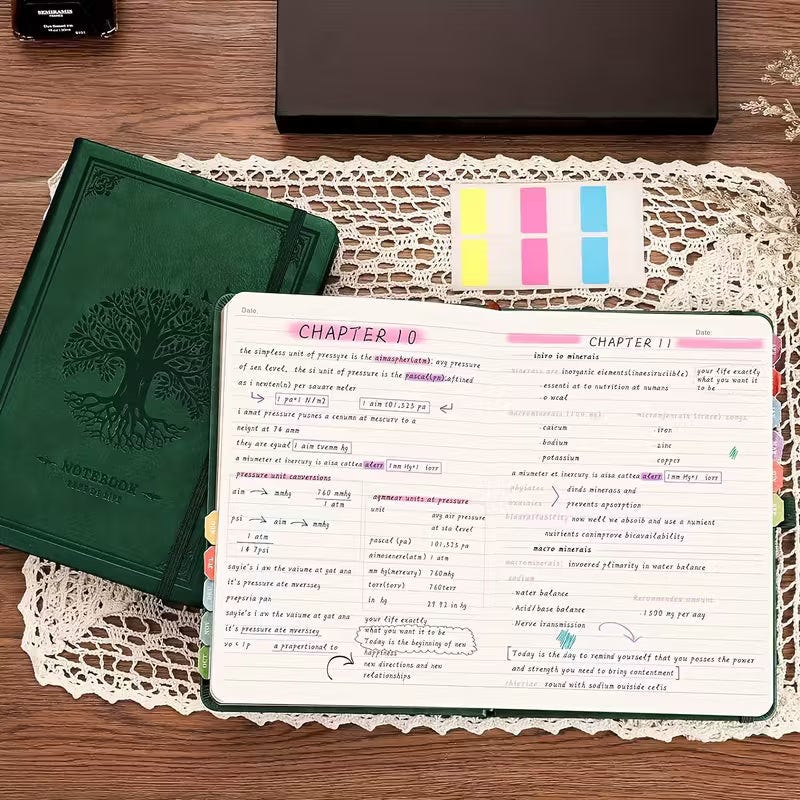 SEMIRAMIS
NOTEBOOK
Date.
CHAPTER 10
the simpless unit of pressyre is the aimaspher(atm): avg pressure
of sen level. the si unit of pressure is the pascal(pn):aftined
as i newten(n) per sauare meler
1 pa*1 N/m2
1 aim t01,525 pa
i amat pressure pusnes a cenumn at mescury to a
neignt at 76 amm
they are equal 1 aim tvemm hg
a miumeter et inercury is aisa cattea aterr 1mm Hg*1 torr
pressure unit canversions
aim → mmhg 760 mmhg
1 atm
psi → aim → mmhg
1 atm
14 7psi
sayie's i aw the vaiume at gat ana
it's pressute ate mverssey
prepsria pan
sayie's i aw the vaiume at gat ana
it's pressute ate mverssey
a prapertional to
aqmmear units at pressute
unit
avg air pressure
at sta level
pascal (pa) 101,525 pa
aimosenere(atm) 1 atm
mm hg(mercury) 760mhg
torr(torv) 760terr
in hg 29 92 in hg
your life exactly
what you want it to be
Today is the beginning of new
happiness
new directions and new
relationships
Date:
CHAPTER 11
iniro io minerais
minerais are inorganic eiements(inaesiruciible)
essenti at to nutrition at numans
o wcal
your life exactly
what you want it
to be
macrominerais (100 mg)
caicum
bodium
potassium
iron
zinc
copper
a miumeter et inercury is aisa cattea aterr 1mm Hg*1 torr
phyiates
oxaiaies
dinds minerass and
prevents apsorption
bioavaitastity now well we absoib and use a nunient
nutients canimprove bicavailability
macro minerais
macrominerais: invoered plimarity in water balance
sodium
water balance
Acid/base balance
Nerve iransmission
Recommended amount
1500 mg per aay
Today is the day to remind yourself that you posses the power
and strength you need to bring contentment
chioriae round with sodium ouiside celis
OCT